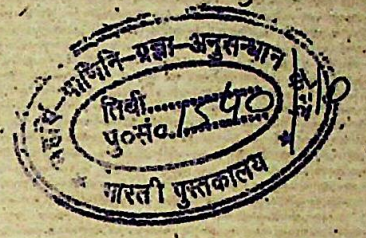 महर्षि-पाणिनि-प्रज्ञा-अनुसन्धान
तिथी..............
पु०सं०.1540.......
* भारती पुस्तकालय *